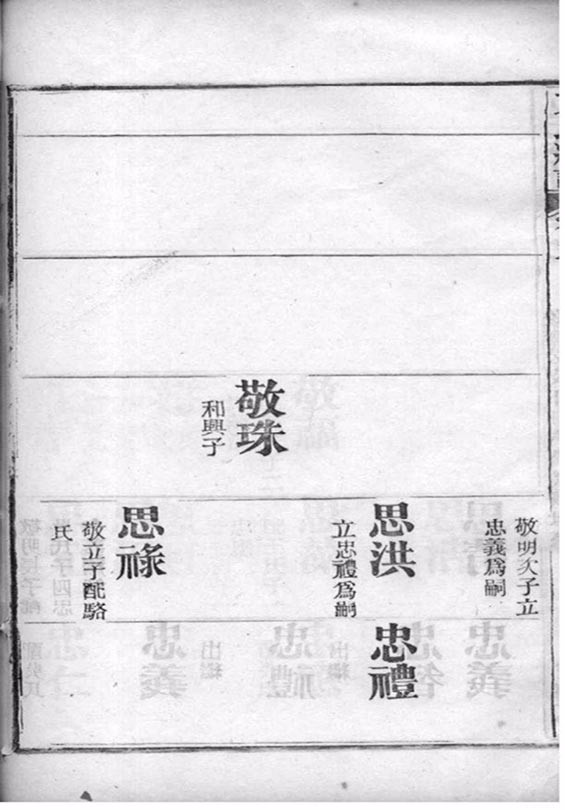 敬明次子立
忠義爲嗣
敬珠
和興子
思洪
立忠禮爲嗣
忠禮
思祿
敬立子配駱
氏